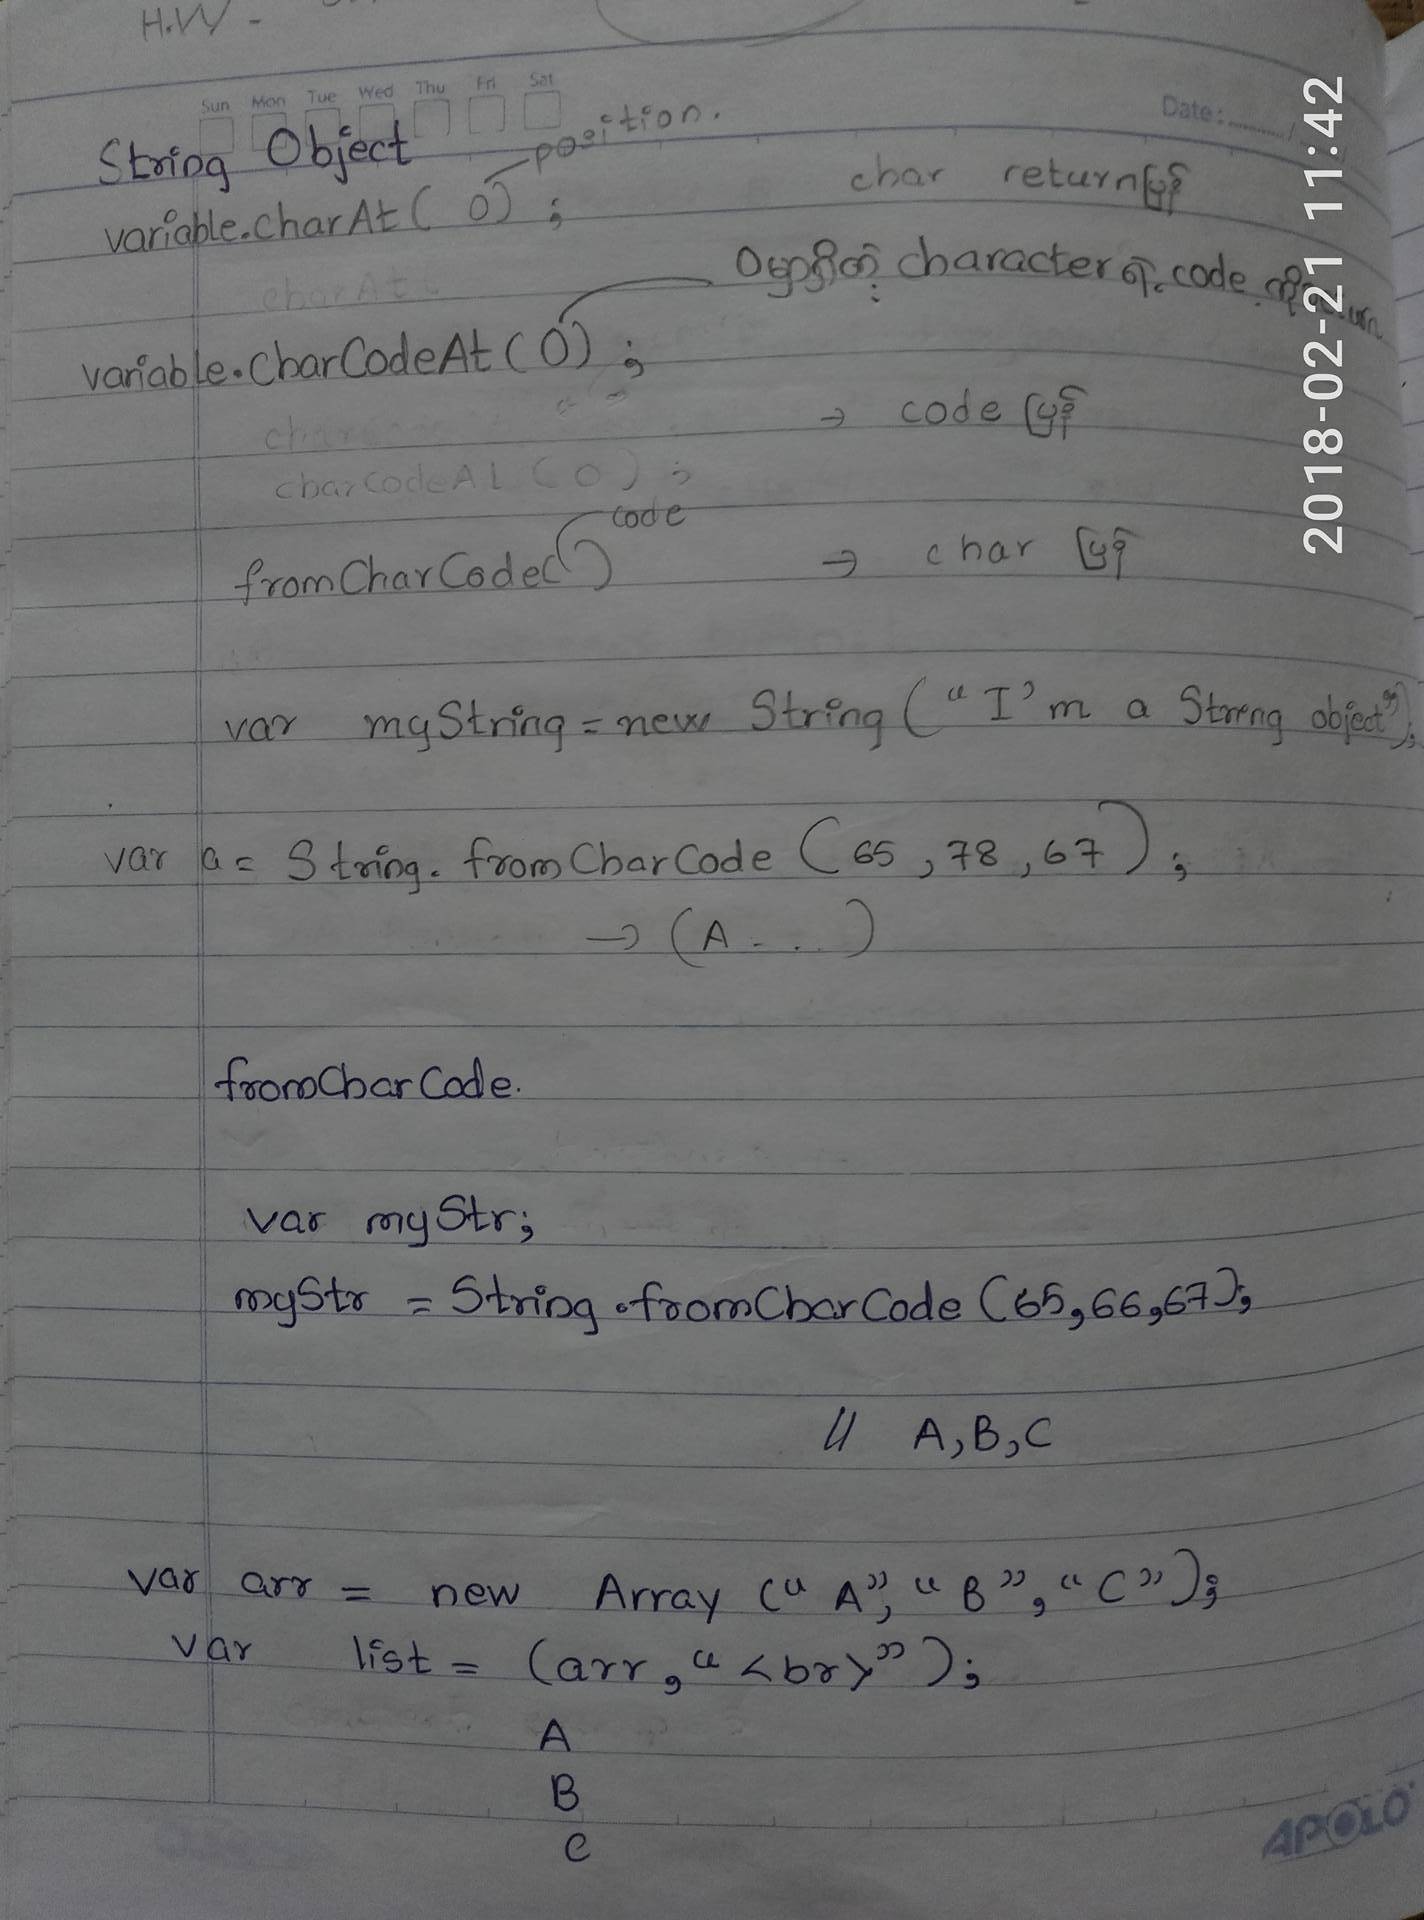 H.W -
Sun Mon Tue Wed Thu Fri Sat
Date:
String Object
position.
variable.charAt( 0 ) ; char returnပြန်
charAt(
0မှာရှိတဲ့ character ရဲ့ code ကို return
variable.CharCodeAt ( 0 ) ;
→ code ပြန်
char
charCodeAt ( 0 ) ;
code
fromCharCode( ) → char ပြန်
var myString = new String ( "I'm a Streng object");
var a = String. fromCharCode ( 65 , 78 , 67 ) ;
→ (A - . . )
fromCharCode.
var myStr;
myStr = String.fromCharCode (65,66,67);
// A, B, C
var arr = new Array ("A", "B", "C");
var list = (arr, "<br>");
A
B
C
APOLO
2018-02-21 11:42